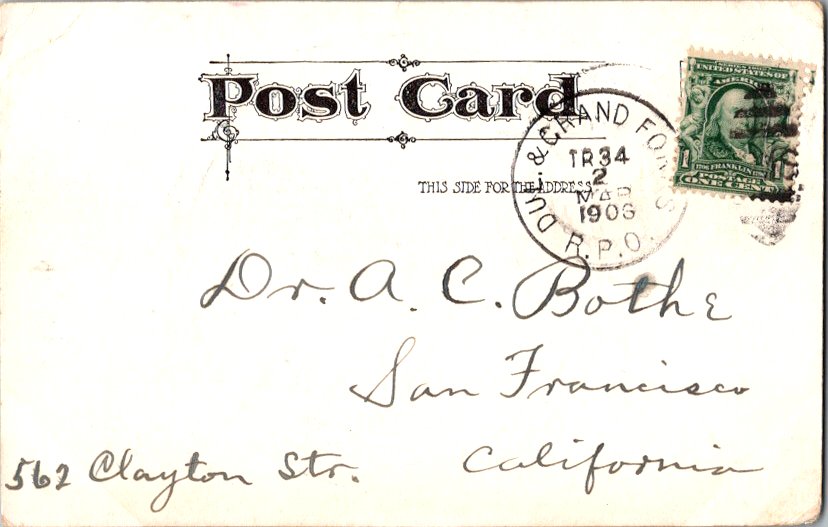 Post Card
THIS SIDE FOR THE ADDRESS.
DUL. & GRAND FORKS
TR34
2
MAR
1906
R.P.O.
SERIES 1902
UNITED STATES OF
AMERICA
1 FRANKLIN 1
POSTAGE
ONE CENT
Dr. A. C. Bothe
San Francisco
562 Clayton Str. California